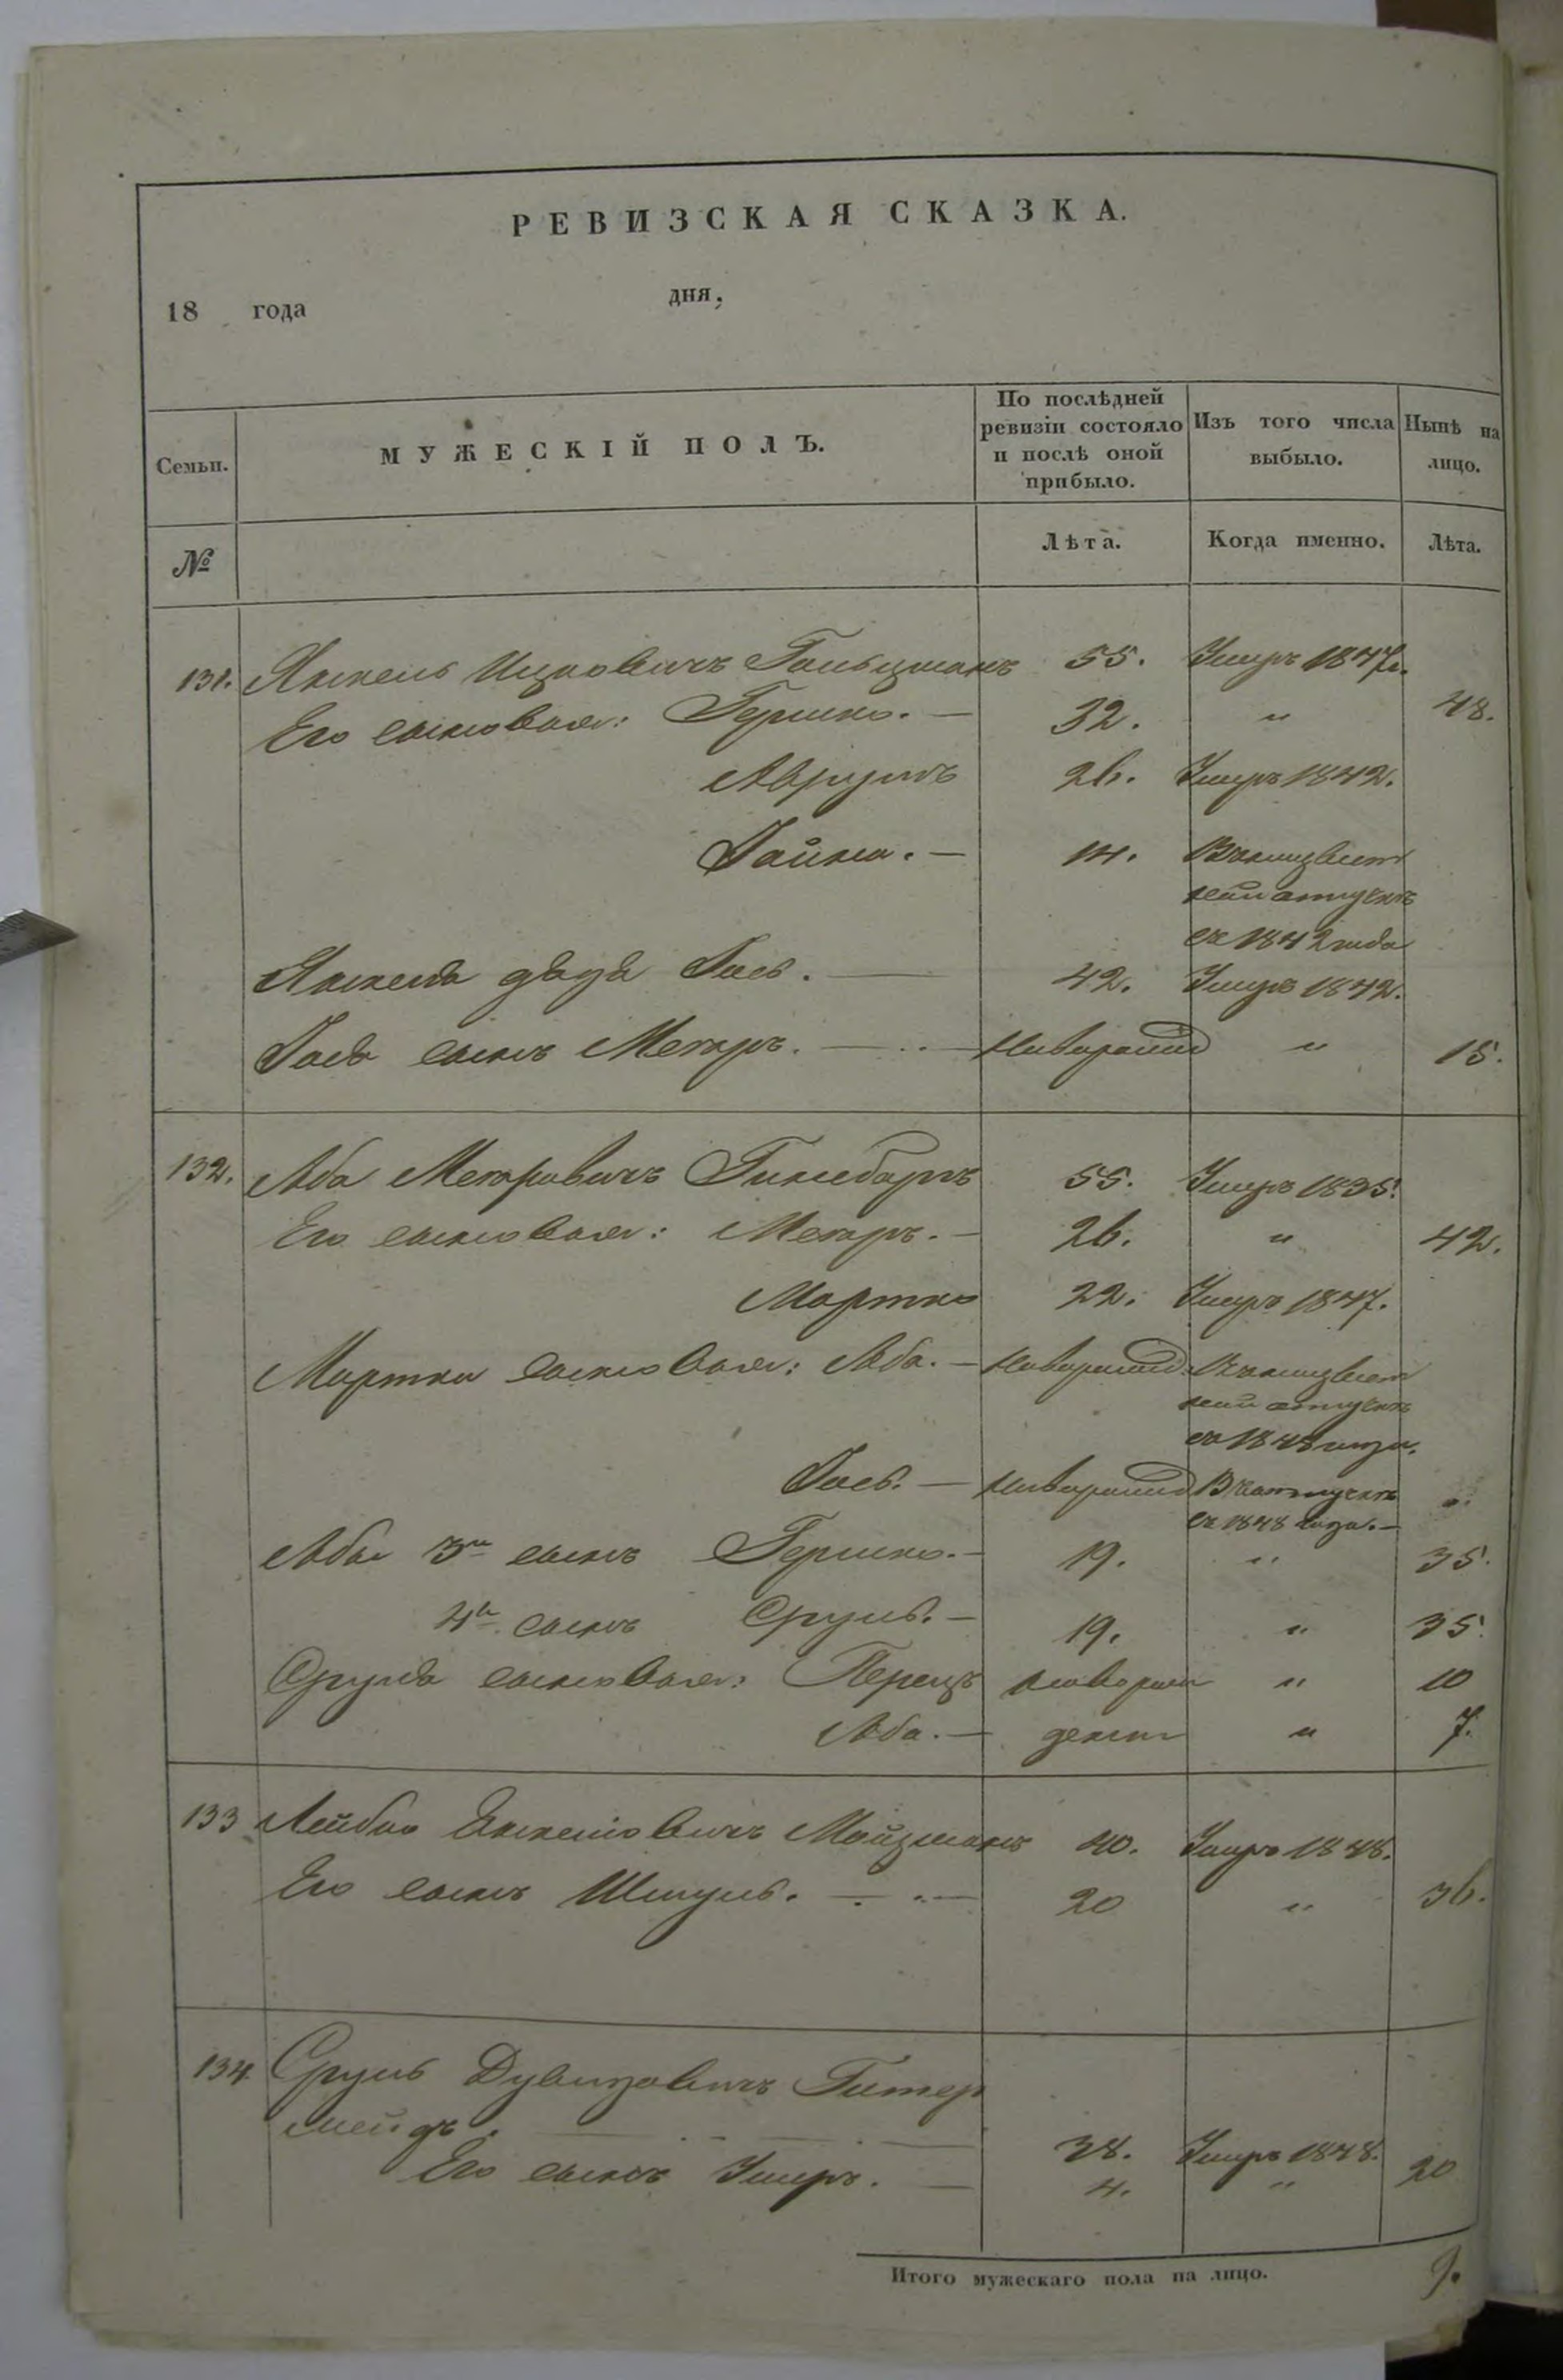 РЕВИЗСКАЯ СКАЗКА.
18 года дня,
Семьи. МУЖЕСКІЙ ПОЛЪ. По послѣдней ревизіи состояло и послѣ оной прибыло. Изъ того числа выбыло. Нынѣ на лицо.
№ Лѣта. Когда именно. Лѣта.
131. Янкель Ицковичъ Гольцманъ 55. Умеръ 1847г.
Его сыновья: Гершко. — 32. " 48.
Аврумъ 26. Умеръ 1842.
14. Въ неизвѣст
ной отлучкѣ
съ 1842 года
Янкеля дядя Іось. — 42. Умеръ 1842.
Іося сынъ Мееръ. — новорожд " 15.
132. Аба Мееровичъ 55. Умеръ 1835.
Его сыновья: Мееръ. — 26. " 42.
Мортко 22. Умеръ 1847.
Мортка сыновья: Аба. — новорожд. Въ неизвѣст
ной отлучкѣ
съ 1848 года.
Іось. — новорожд Въ отлучкѣ
съ 1848 года. —
Абы 3й сынъ Гершко. — 19. " 35.
4й сынъ Сруль. — 19. " 35.
Сруля сыновья: Перецъ новорож " 10
Аба. — денъ " 7.
133 Лейбко Янкеліовичъ Мойзманъ 40. Умеръ 1848.
Его сынъ Шмуль. — 20 " 36.
134. Сруль Дувидовичъ Гитер
мейдъ. — 38. Умеръ 1848.
Его сынъ Умеръ. — 4. " 20
Итого мужескаго пола на лицо. 9.